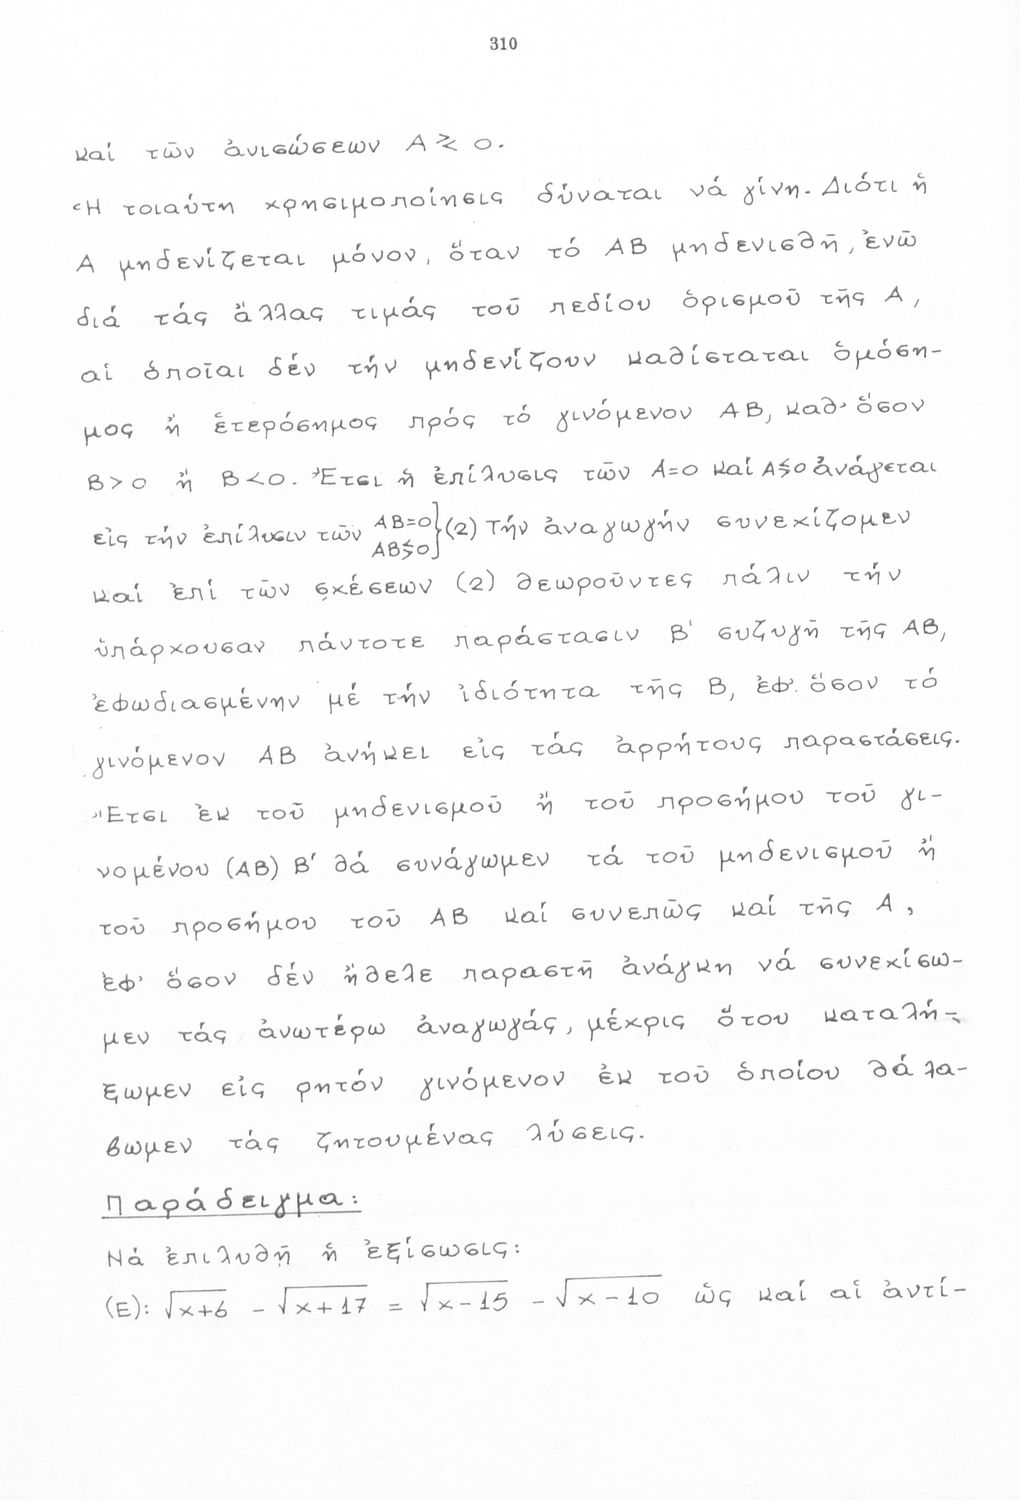 310
καί τῶν ἀνισώσεων Α ≷ 0.
Ἡ τοιαύτη χρησιμοποίησις δύναται νά γίνη. Διότι ἡ
Α μηδενίζεται μόνον, ὅταν τό ΑΒ μηδενισθῆ, ἐνῶ
διά τάς ἄλλας τιμάς τοῦ πεδίου ὁρισμοῦ τῆς Α,
αἱ ὁποῖαι δέν τήν μηδενίζουν καθίσταται ὁμόση-
μος ἤ ἑτερόσημος πρός τό γινόμενον ΑΒ, καθ' ὅσον
Β > 0 ἤ Β < 0. Ἔτσι ἡ ἐπίλυσις τῶν Α=0 καί Α≶0 ἀνάγεται
εἰς τήν ἐπίλυσιν τῶν ΑΒ=0 ΑΒ≶0 } (2) Τήν ἀναγωγήν συνεχίζομεν
καί ἐπί τῶν σχέσεων (2) θεωροῦντες πάλιν τήν
ὑπάρχουσαν πάντοτε παράστασιν Β' συζυγῆ τῆς ΑΒ,
ἐφωδιασμένην μέ τήν ἰδιότητα τῆς Β, ἐφ' ὅσον τό
γινόμενον ΑΒ ἀνήκει εἰς τάς ἀρρήτους παραστάσεις.
Ἔτσι ἐκ τοῦ μηδενισμοῦ ἤ τοῦ προσήμου τοῦ γι-
νομένου (ΑΒ) Β' θά συνάγωμεν τά τοῦ μηδενισμοῦ ἤ
τοῦ προσήμου τοῦ ΑΒ καί συνεπῶς καί τῆς Α,
ἐφ' ὅσον δέν ἤθελε παραστῆ ἀνάγκη νά συνεχίσω-
μεν τάς ἀνωτέρω ἀναγωγάς, μέχρις ὅτου καταλή-
ξωμεν εἰς ρητόν γινόμενον ἐκ τοῦ ὁποίου θά λα-
βωμεν τάς ζητουμένας λύσεις.
Παράδειγμα:
Νά ἐπιλυθῆ ἡ ἐξίσωσις:
(Ε): √x+6 - √x+17 = √x-15 - √x-10 ὡς καί αἱ ἀντί-